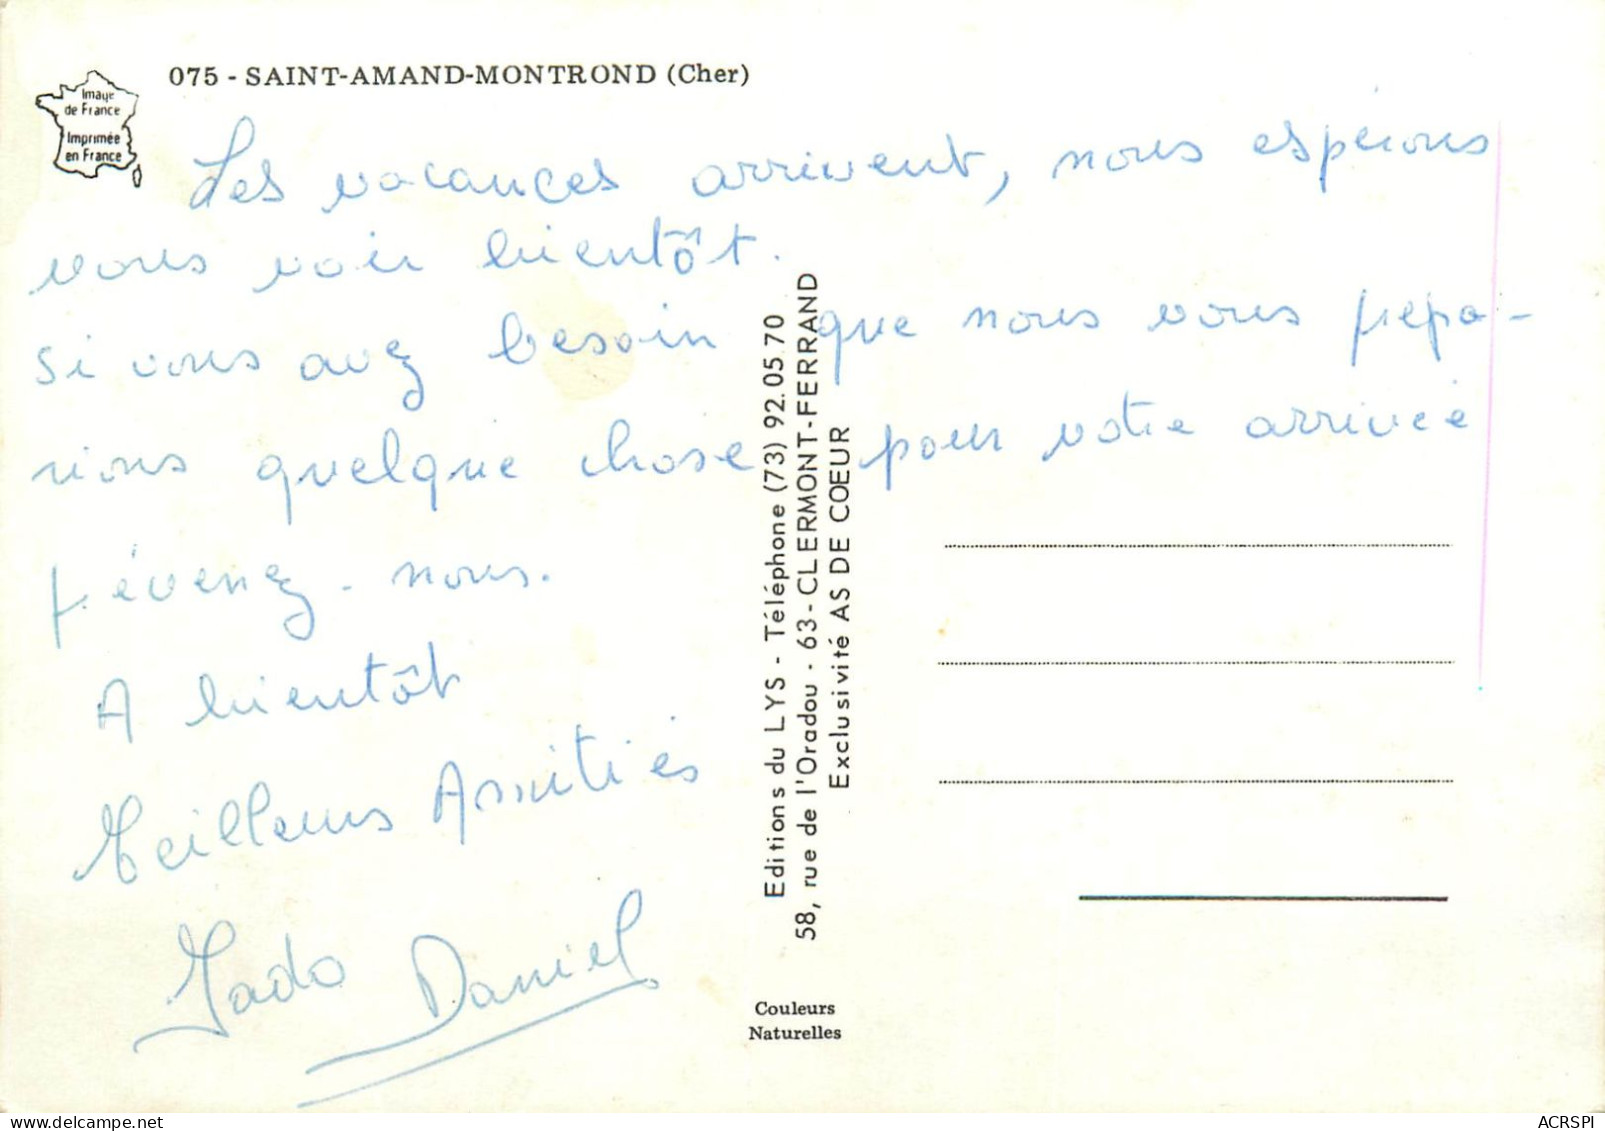 075 - SAINT-AMAND-MONTROND (Cher)
Image
de France
Imprimée
en France
Les vacances arrivent, nous espérons
vous voir bientôt.
si vous avez besoin que nous vous prépa-
rions quelque chose pour votre arrivée
prévenez-nous.
A bientôt
Meilleurs Amitiés
Daniel
Editions du LYS - Téléphone (73) 92.05.70
58, rue de l'Oradou - 63 - CLERMONT-FERRAND
Exclusivité AS DE COEUR
Couleurs
Naturelles
ACRSPI